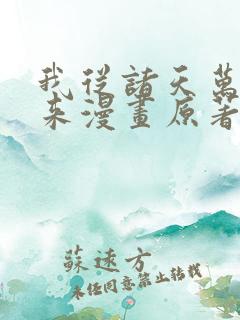 我從諸天萬
來漫畫原著
蘇遠方
未经同意禁止转载